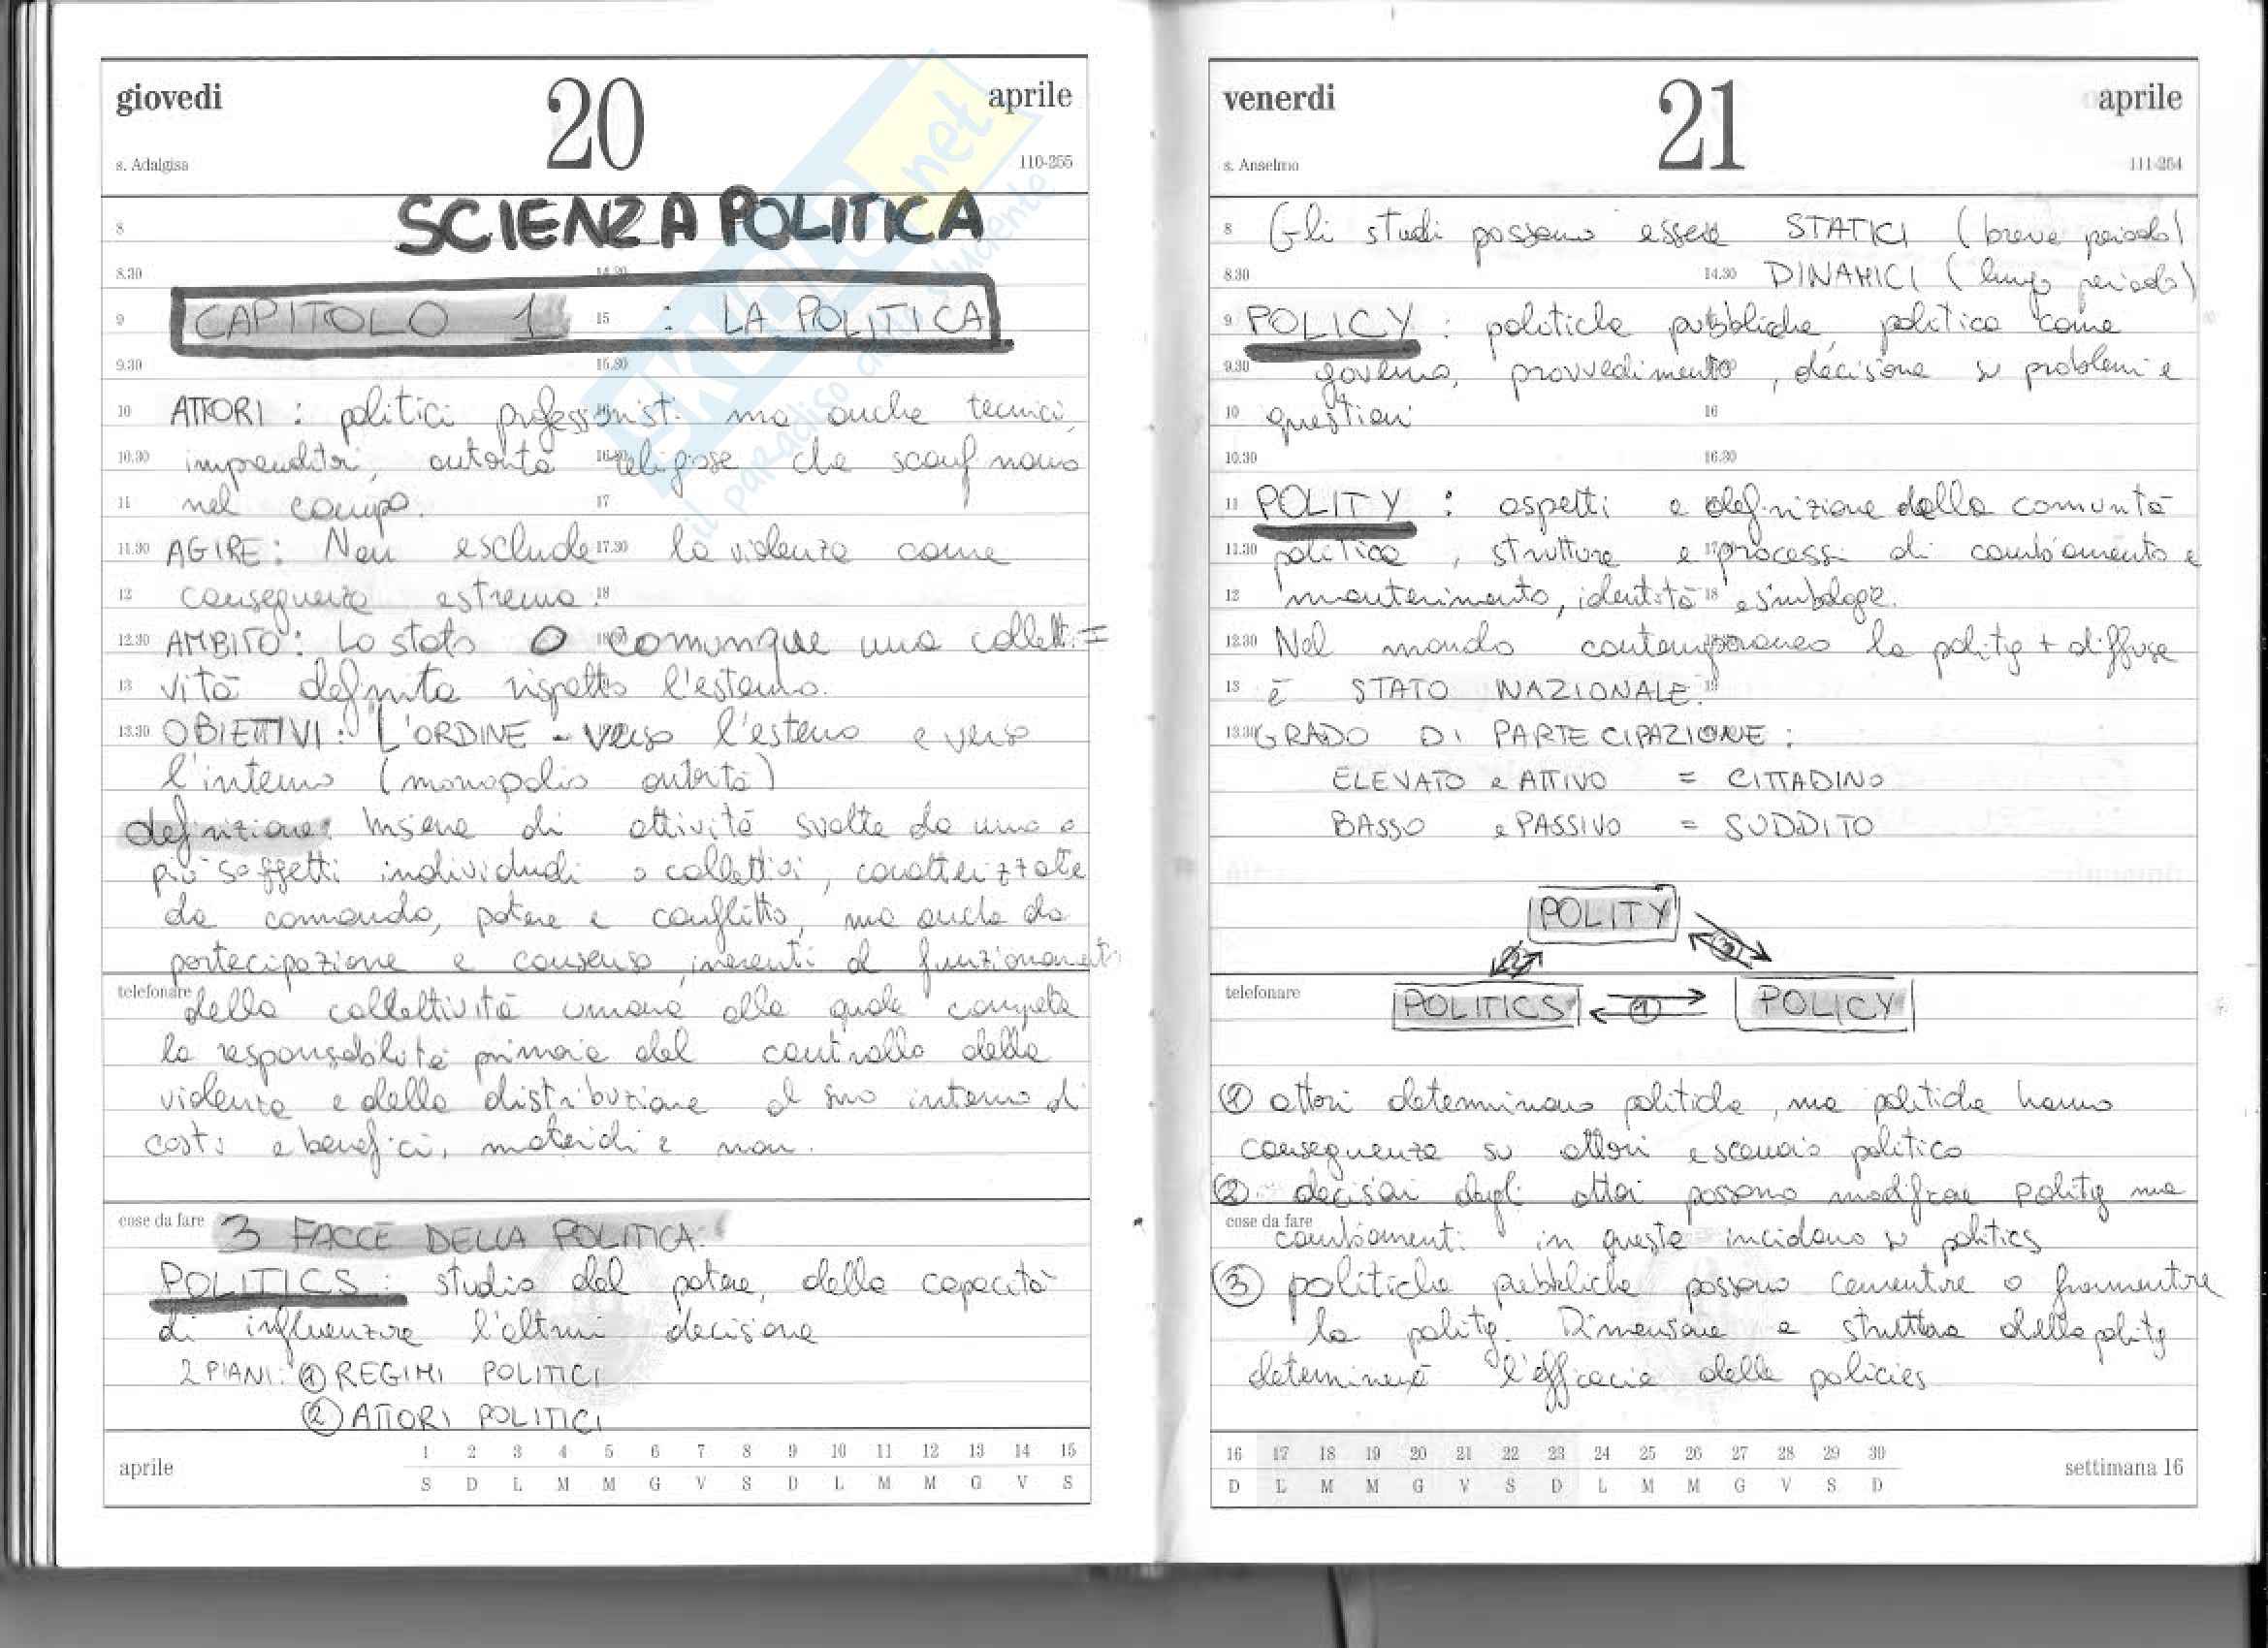 giovedi 20 aprile
s. Adalgisa 110-255
SCIENZA POLITICA
8
8.30 14.30
CAPITOLO 1 : LA POLITICA
9 15
9.30 15.30
10 ATTORI : politici professionisti ma anche tecnici,
10.30 imprenditori, autorità religiose che sconfinano
11 nel campo. 17
11.30 AGIRE: Non esclude 17.30 la violenza come
12 conseguenza estrema. 18
12.30 AMBITO: Lo stato O comunque una colletti=
13 vità definita rispetto l'esterno.
13.30 OBIETTIVI: L'ORDINE - verso l'esterno e verso
l'interno (monopolio autorità)
definizione: Insieme di attività svolte da uno o
più soggetti individuali o collettivi, caratterizzate
da comando, potere e conflitto, ma anche da
partecipazione e consenso, inerenti al funzionamento
telefonare della collettività umana alla quale compete
la responsabilità primaria del controllo della
violenza e della distribuzione al suo interno di
costi e benefici, materiali e non.
cose da fare 3 FACCE DELLA POLITICA:
POLITICS: studio del potere, della capacità
di influenzare l'altrui decisione
2 PIANI: ① REGIMI POLITICI
② ATTORI POLITICI
aprile 1 2 3 4 5 6 7 8 9 10 11 12 13 14 15
S D L M M G V S D L M M G V S
venerdi 21 aprile
s. Anselmo 111-254
8 Gli studi possono essere STATICI (breve periodo)
8.30 14.30 DINAMICI (lungo periodo)
9 POLICY : politiche pubbliche, politica come
9.30 governo, provvedimento, decisione su problemi e
10 questioni 16
10.30 16.30
11 POLITY : aspetti e definizione della comunità
11.30 politica, strutture e processi di cambiamento e
12 mantenimento, identità 18 e simbologie.
12.30 Nel mondo contemporaneo la polity + diffusa
13 è STATO NAZIONALE. 19
13.30 GRADO DI PARTECIPAZIONE :
ELEVATO e ATTIVO = CITTADINO
BASSO e PASSIVO = SUDDITO
POLITY
② ③
telefonare POLITICS ① POLICY
① attori determinano politiche, ma politiche hanno
conseguenze su attori e scenario politico
② decisioni degli attori possono modificare polity ma
cose da fare cambiamenti in queste incidono su politics
③ politiche pubbliche possono cementare o frammentare
la polity. Dimensione e struttura della polity
determinerà l'efficacia delle policies
16 17 18 19 20 21 22 23 24 25 26 27 28 29 30
D L M M G V S D L M M G V S D
settimana 16